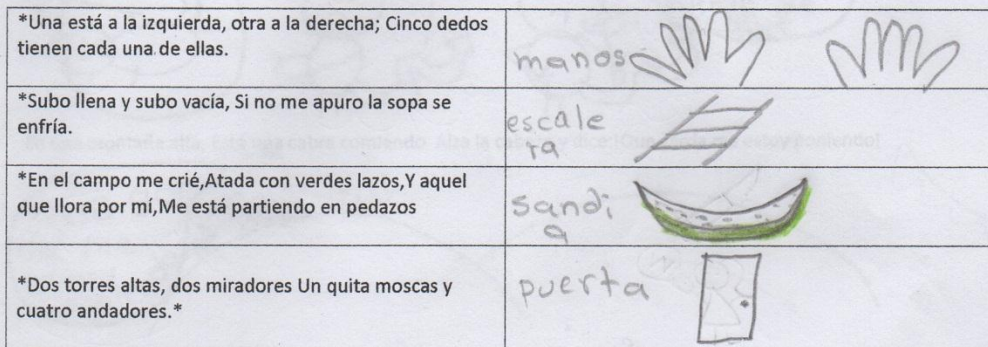 *Una está a la izquierda, otra a la derecha; Cinco dedos
tienen cada una de ellas.
manos
*Subo llena y subo vacía, Si no me apuro la sopa se
enfría.
escale
ra
*En el campo me crié,Atada con verdes lazos,Y aquel
que llora por mí,Me está partiendo en pedazos
sandi
a
*Dos torres altas, dos miradores Un quita moscas y
cuatro andadores.*
puerta